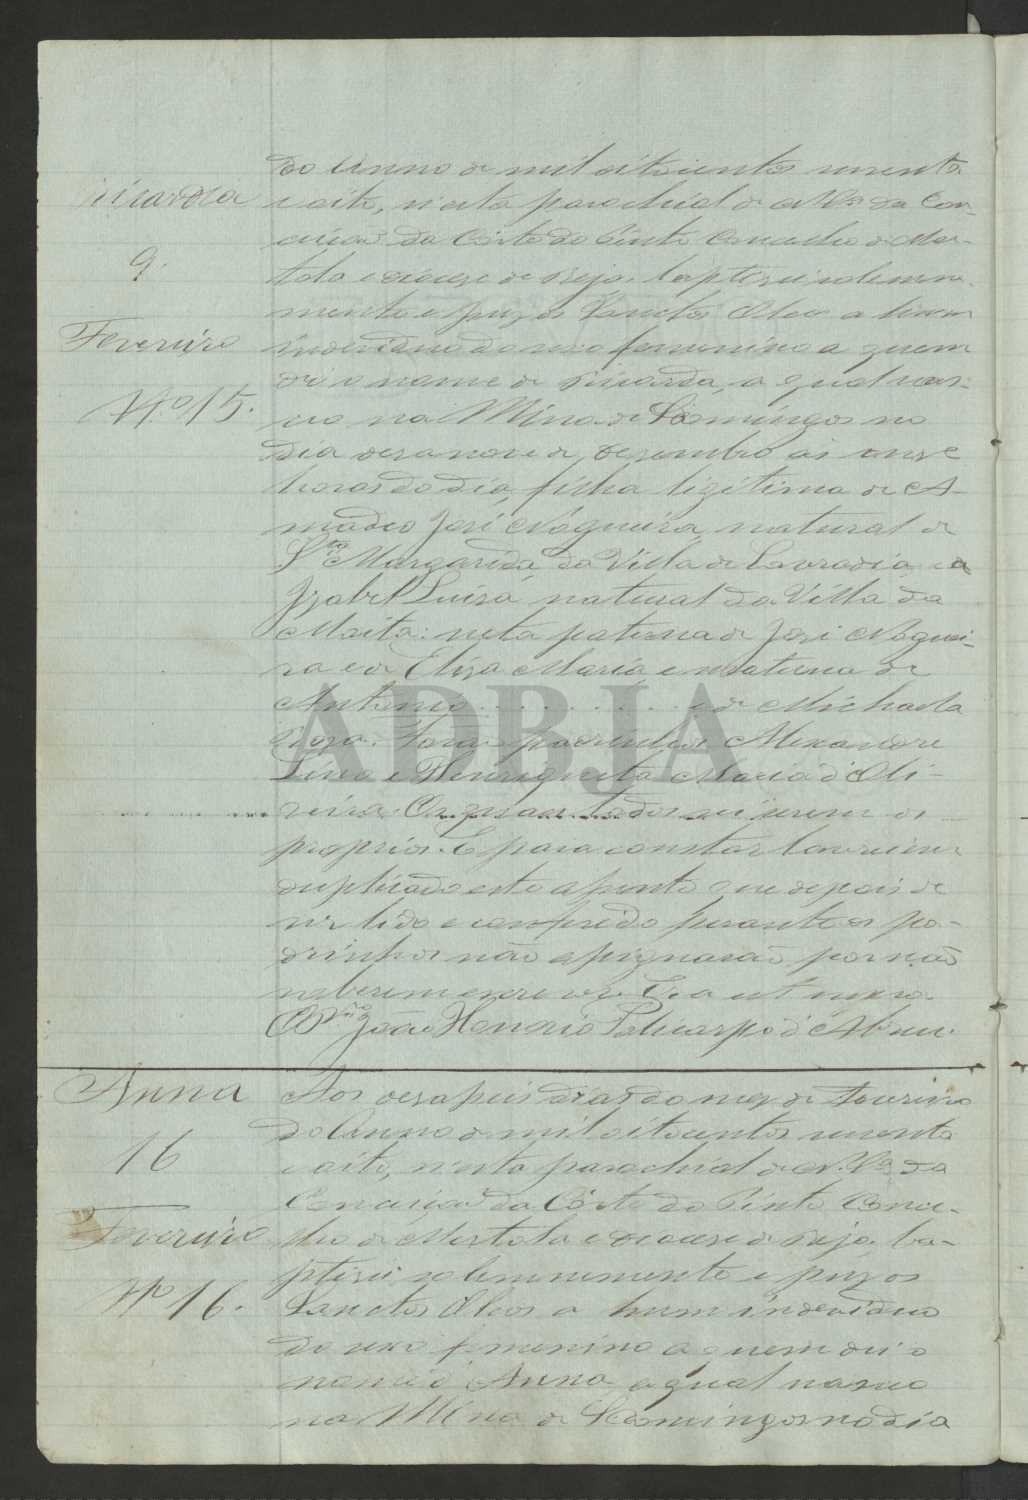 do anno de mil oitocentos secenta
Ricardа
e oito, n'esta parochial de N. Sra. da Con-
ceiçaõ da Côrte do Pinto Concelho de Mer-
9.
tola e diocese de Beja, baptizei solemne-
mente e puz os Sanctos Oleos a hum
Fevereiro
individuo do sexo femenino a quem
dei o nome de Ricarda, a qual nas-
Nº 15.
ceo na Mina de S. Domingos no
dia desanove de dezembro ás onze
horas do dia, filha ligitima de A-
madeo José Nogueira, natural de
Sta. Margarida, da Villa de Lavradio, e
Izabel Luisa, natural da Villa da
Moita: neta paterna de José Noguei-
ra e de Eliza Maria e materna de
Antonio . . . . . . . . . e de Michaela
Roza. Foraõ padrinhos Alexandre
Lino e Henriqueta Maria d'Oli-
veira. Os quaes todos sei serem os
proprios. E para constar lavrei em
duplicado este assento que depois de
ser lido e conferido perante os pa-
drinhos não assignaraõ por naõ
saberem escrever. Era ut supra.
O Pr. João Honorio Policarpo d'Abreu.
Anna
Aos desaseis dias do mez de Fevereiro
do Anno de mil oitocentos secenta
16
e oito, n'esta parochial de N. Sra. da
Conceiçaõ da Côrte do Pinto Conce-
Fevereiro
lho de Mertola e diocese de Beja, ba-
ptizei solemnemente e puz os
Nº 16.
Sanctos Oleos a hum individuo
do sexo femenino a quem dei o
nome d' Anna, a qual nasceo
na Mina de S. Domingos no dia
ADBJA